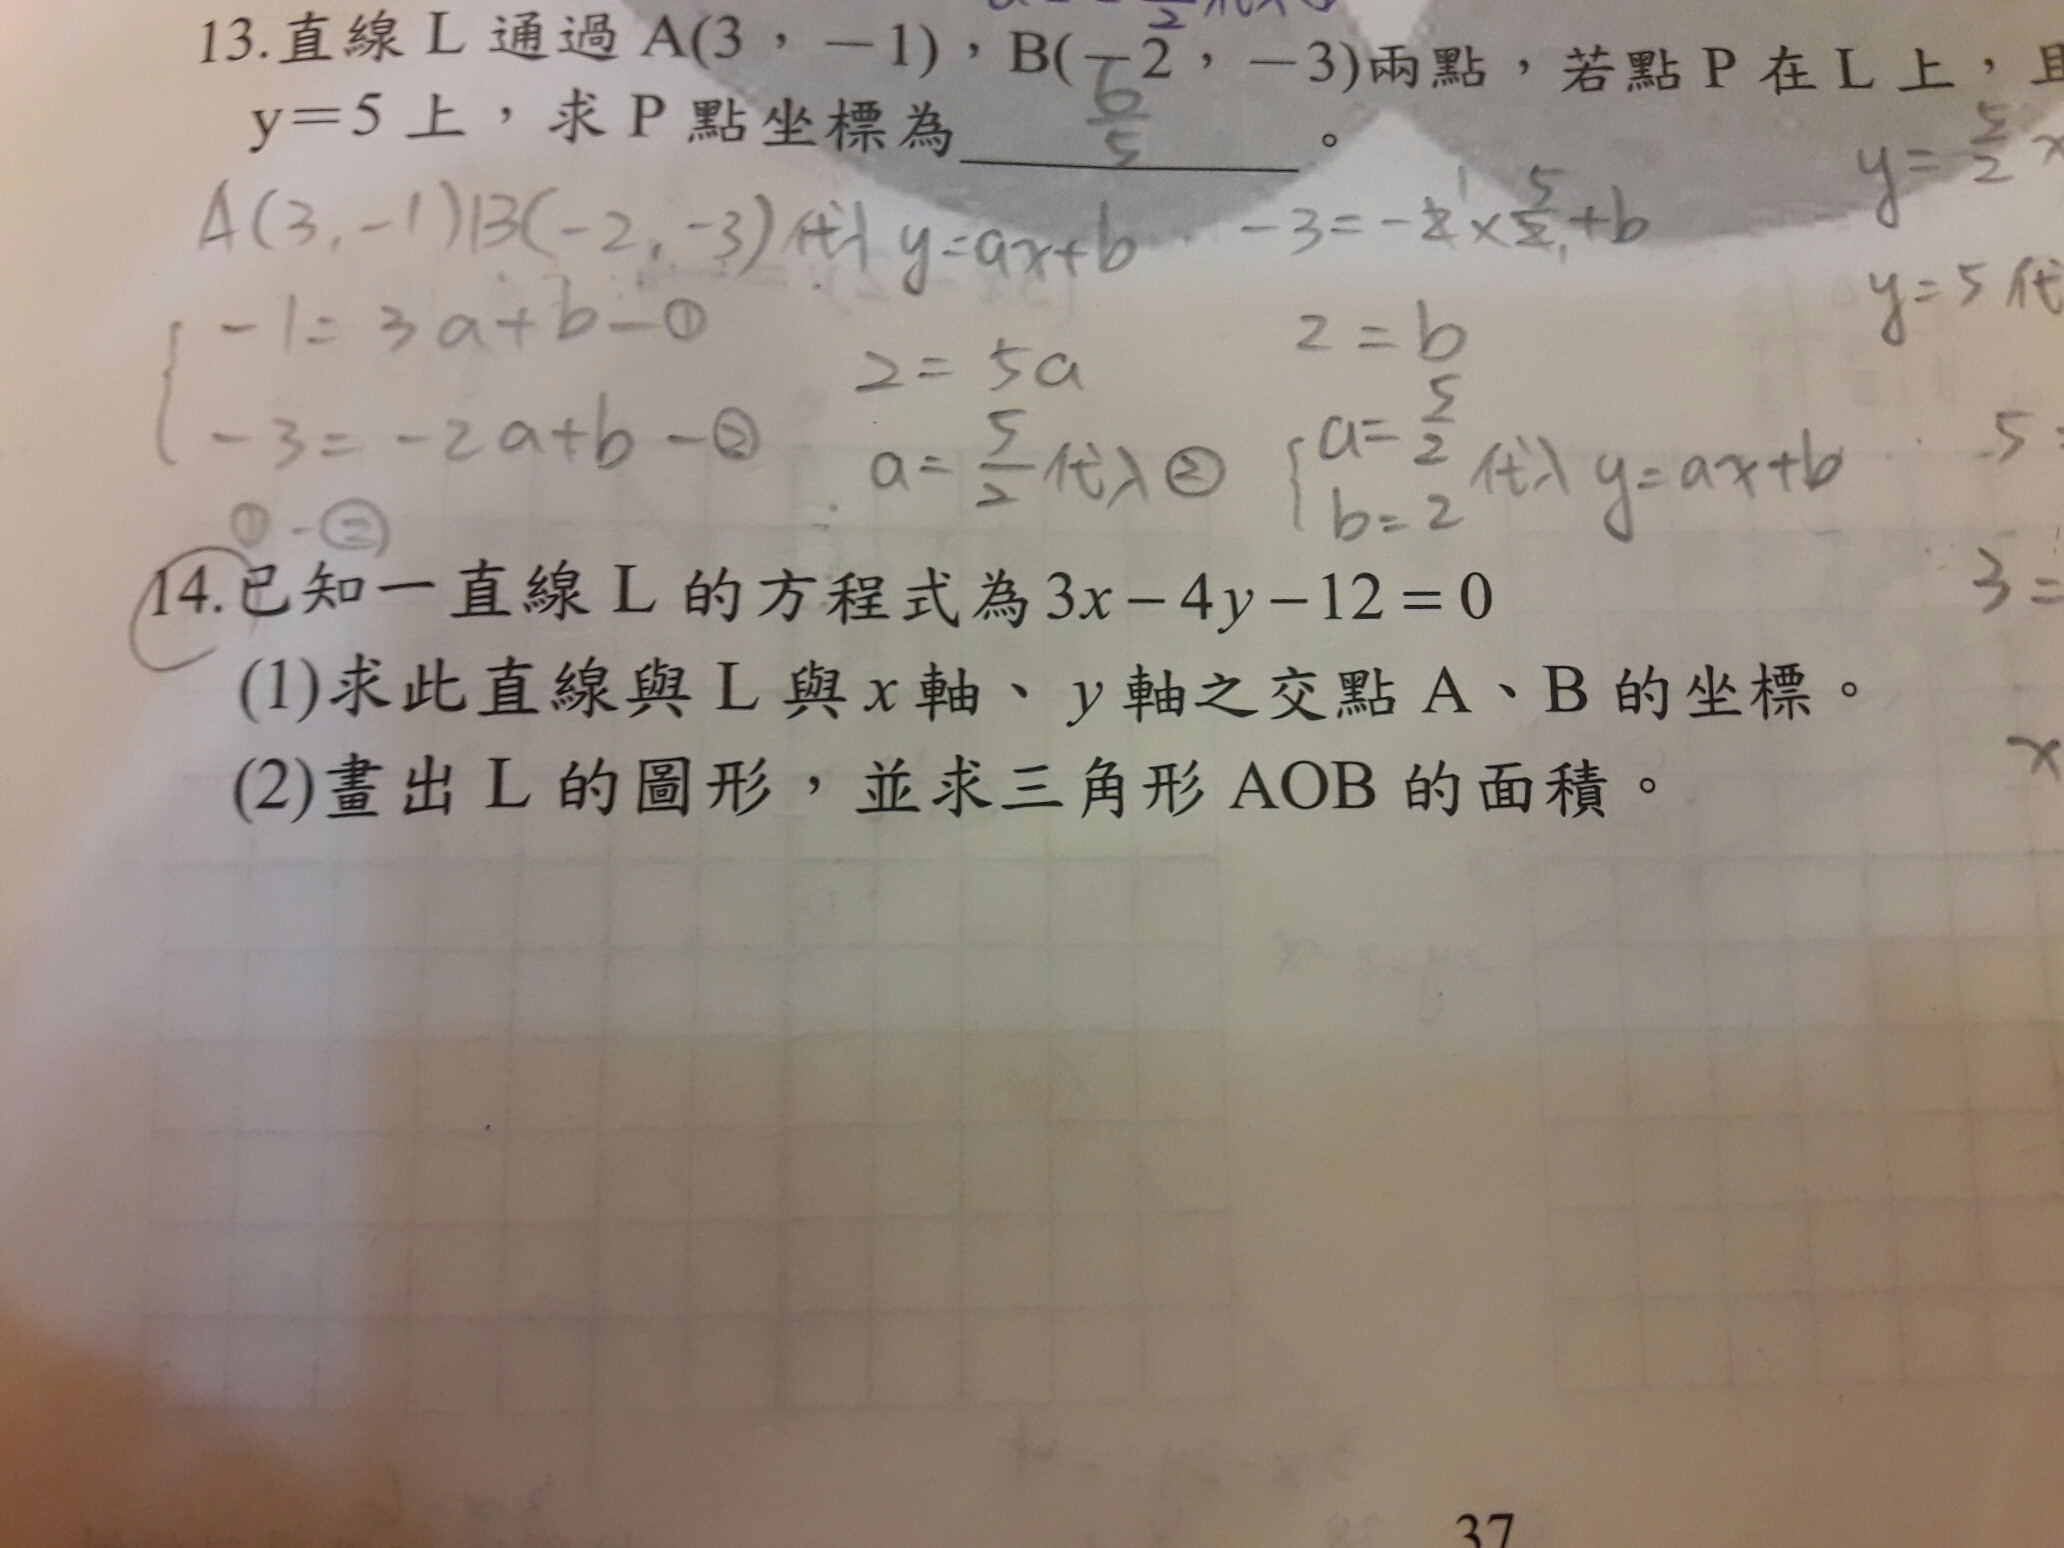 13.直線 L 通過 A(3,-1),B(-2,-3)兩點,若點 P 在 L 上,且
y=5 上,求 P 點坐標為 6/5 。
A(3,-1)B(-2,-3)代入 y=ax+b
-1=3a+b-①
-3=-2a+b-②
①-②
2=5a
a=5/2代入②
-3=-2×5/2+b
2=b
a=5/2
b=2
代入 y=ax+b
y=5/2x
y=5代
5=
3=
x
14.已知一直線 L 的方程式為3x-4y-12=0
(1)求此直線與 L 與 x 軸、y 軸之交點 A、B 的坐標。
(2)畫出 L 的圖形,並求三角形 AOB 的面積。
37